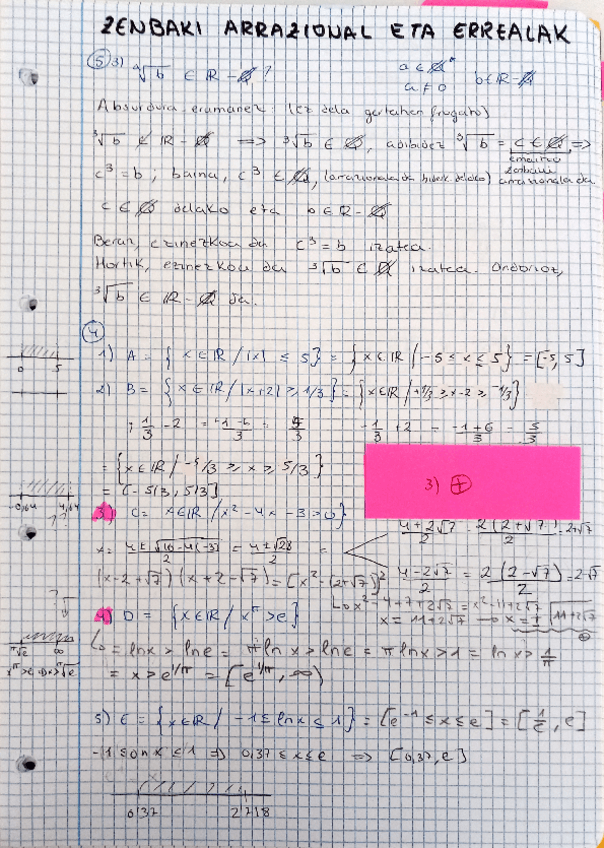 ZENBAKI ARRAZIONAL ETA ERREALAK
⑤ 3) ∛b ∈ ℝ - ℚ ? a ∈ ℚ* b ∈ ℝ - ℚ
a ≠ 0
Absurdura eramanez: (ez dela gertatzen frogatu)
∛b ∉ ℝ - ℚ ⟹ ∛b ∈ ℚ, adibidez ∛b = c ∈ ℚ, ⟹
emaitza
zenbaki
c³ = b ; baina, c³ ∈ ℚ, (arrazionala da delako) arrazionala da
c ∈ ℚ delako eta b ∈ ℝ - ℚ
Beraz, ezinezkoa da c³ = b izatea.
Hortik, ezinezkoa da ∛b ∈ ℚ izatea. Ondorioz,
∛b ∈ ℝ - ℚ da.
④
1) A = { x ∈ ℝ / |x| ≤ 5 } = { x ∈ ℝ / -5 ≤ x ≤ 5 } = [-5, 5]
0 5
2) B = { x ∈ ℝ / |x+2| ≥ 1/3 } = { x ∈ ℝ / +1/3 ≥ x-2 ≥ -1/3 }
1/3 - 2 = -1-6/3 = 5/3 -1/3 + 2 = -1+6/3 = 5/3
= { x ∈ ℝ / -5/3 ≥ x ≥ 5/3 }
= [-5/3, 5/3]
3) ⊕
-0,64 4,64
3) C = x ∈ ℝ / x² - 4x - 3 > 0 }
x = 4 ± √16-4(-3) / 2 = 4 ± √28 / 2 =
4+2√7 / 2 = 2(2+√7) / 2 = 2+√7
4-2√7 / 2 = 2(2-√7) / 2 = 2-√7
(x-2+√7)(x+2-√7) = [x² - (2+√7)]²
↳ x² - 4+7+2√7 = x² - 11+2√7
x = 11+2√7 → x = ± √11+2√7
4) D = { x ∈ ℝ / x^π > e }
π√e ∞
x^π > e ⟹ x > π√e
↳ = ln x > ln e = π ln x > ln e = π ln x > 1 = ln x > 1/π
= x > e^1/π = [e^1/π, ∞)
5) E = { x ∈ ℝ / -1 ≤ ln x ≤ 1 } = [e⁻¹ ≤ x ≤ e] = [1/e, e]
-1 ≤ ln x ≤ 1 ⟹ 0,37 ≤ x ≤ e ⟹ [0,37, e]
0,37 2,718